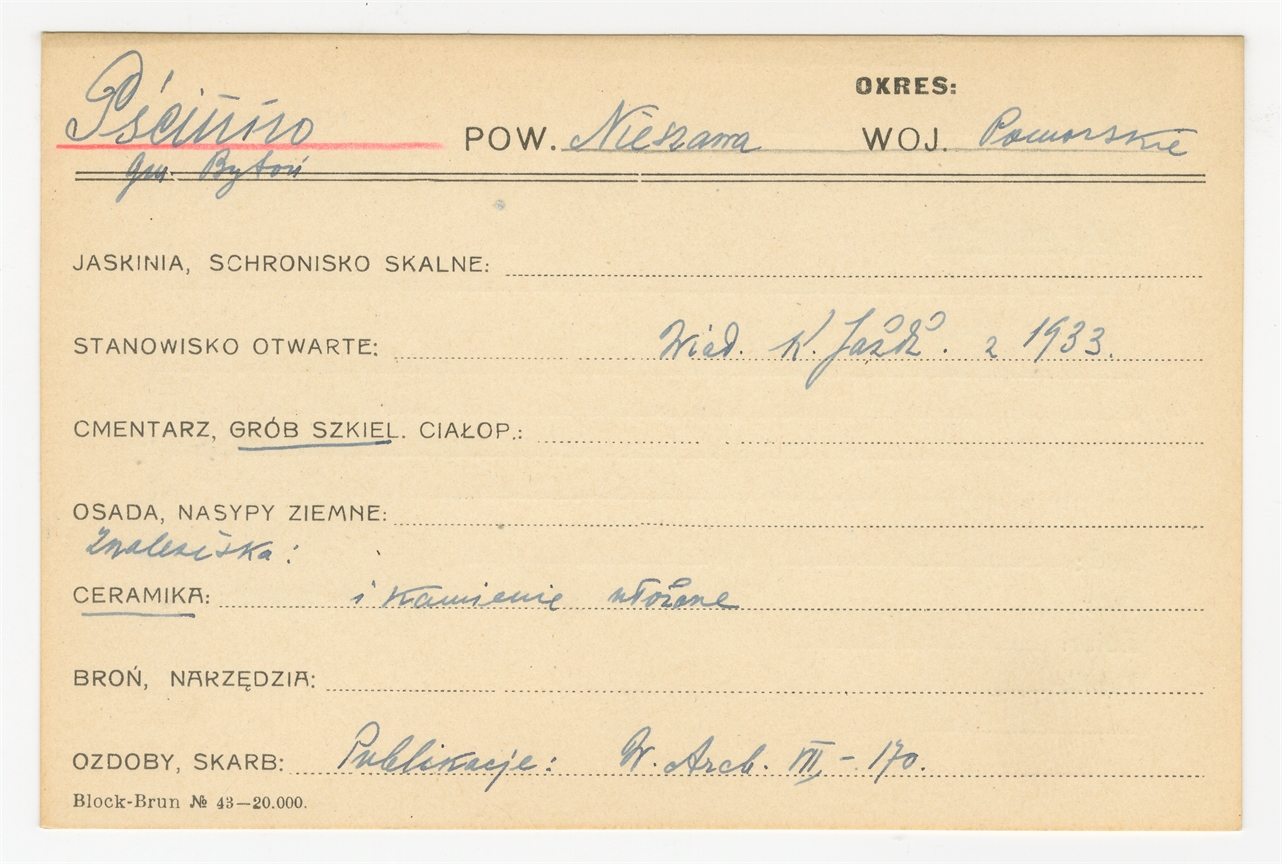 OKRES:
Pścinno POW. Nieszawa WOJ. Pomorskie
gm. Bytoń
JASKINIA, SCHRONISKO SKALNE:
STANOWISKO OTWARTE: Wiad. K. Jażdż. z 1933.
CMENTARZ, GRÓB SZKIEL. CIAŁOP.:
OSADA, NASYPY ZIEMNE:
Znaleziska:
CERAMIKA: i kamienie włożone
BROŃ, NARZĘDZIA:
OZDOBY, SKARB: Publikacje: W. Arch. VIII - 170.
Block-Brun № 43—20.000.